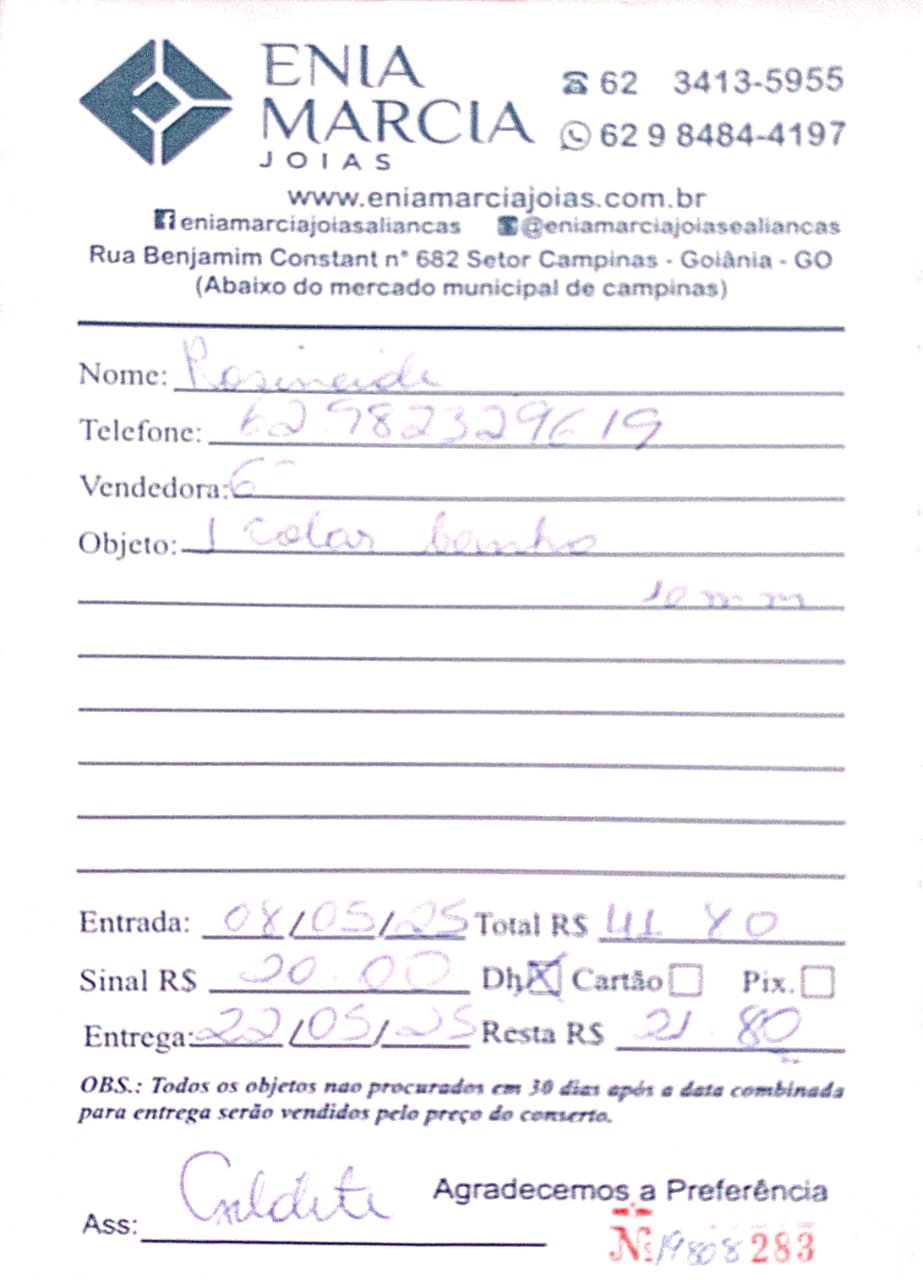 ENIA
MARCIA
JOIAS
62 3413-5955
62 9 8484-4197
www.eniamarciajoias.com.br
eniamarciajoiasaliancas @eniamarciajoiasealiancas
Rua Benjamim Constant n° 682 Setor Campinas - Goiânia - GO
(Abaixo do mercado municipal de campinas)
Nome: Rosineide
Telefone: 62 982329619
Vendedora:
Objeto: 1 colar banho
10 mm
Entrada: 08/05/25 Total R$ 41.80
Sinal R$ 20.00 Dh X Cartão Pix.
Entrega: 22/05/25 Resta R$ 21.80
OBS.: Todos os objetos nao procurados em 30 dias após a data combinada
para entrega serão vendidos pelo preço do conserto.
Agradecemos a Preferência
Ass:
Nº 19808 283